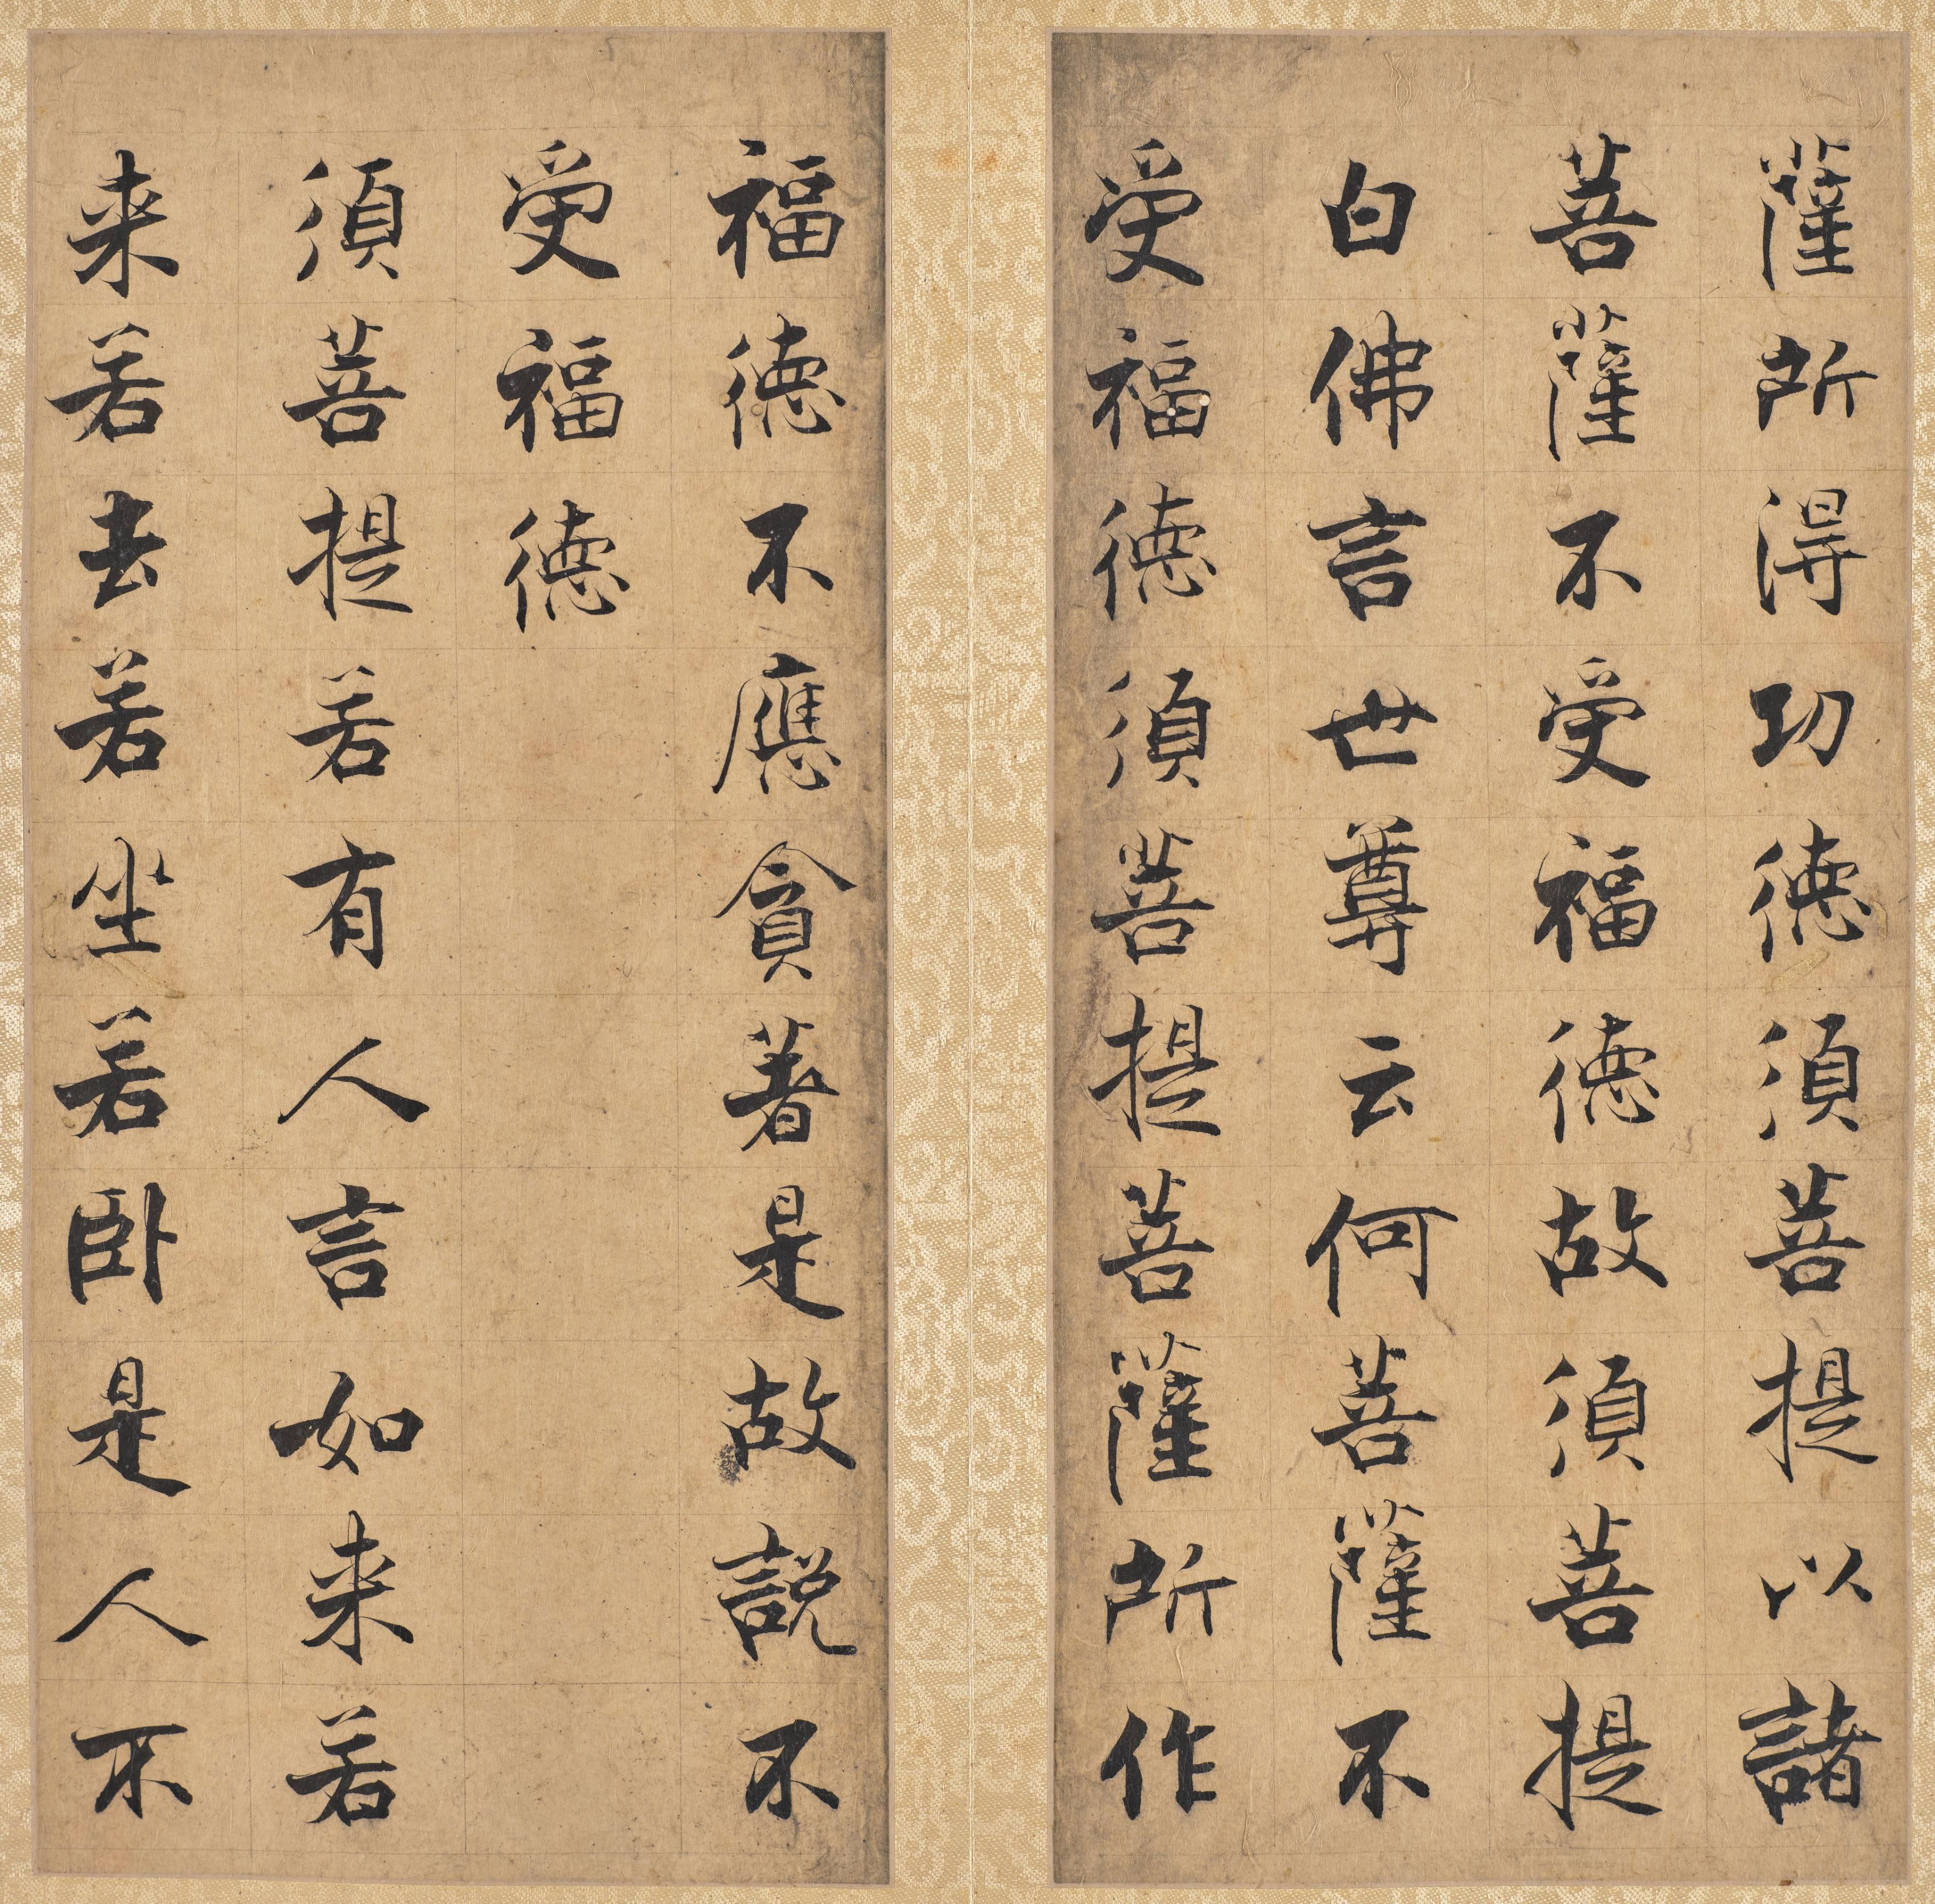 薩所得功德須菩提以諸
菩薩不受福德故須菩提
白佛言世尊云何菩薩不
受福德須菩提菩薩所作
福德不應貪著是故說不
受福德
須菩提若有人言如来若
来若去若坐若卧是人不